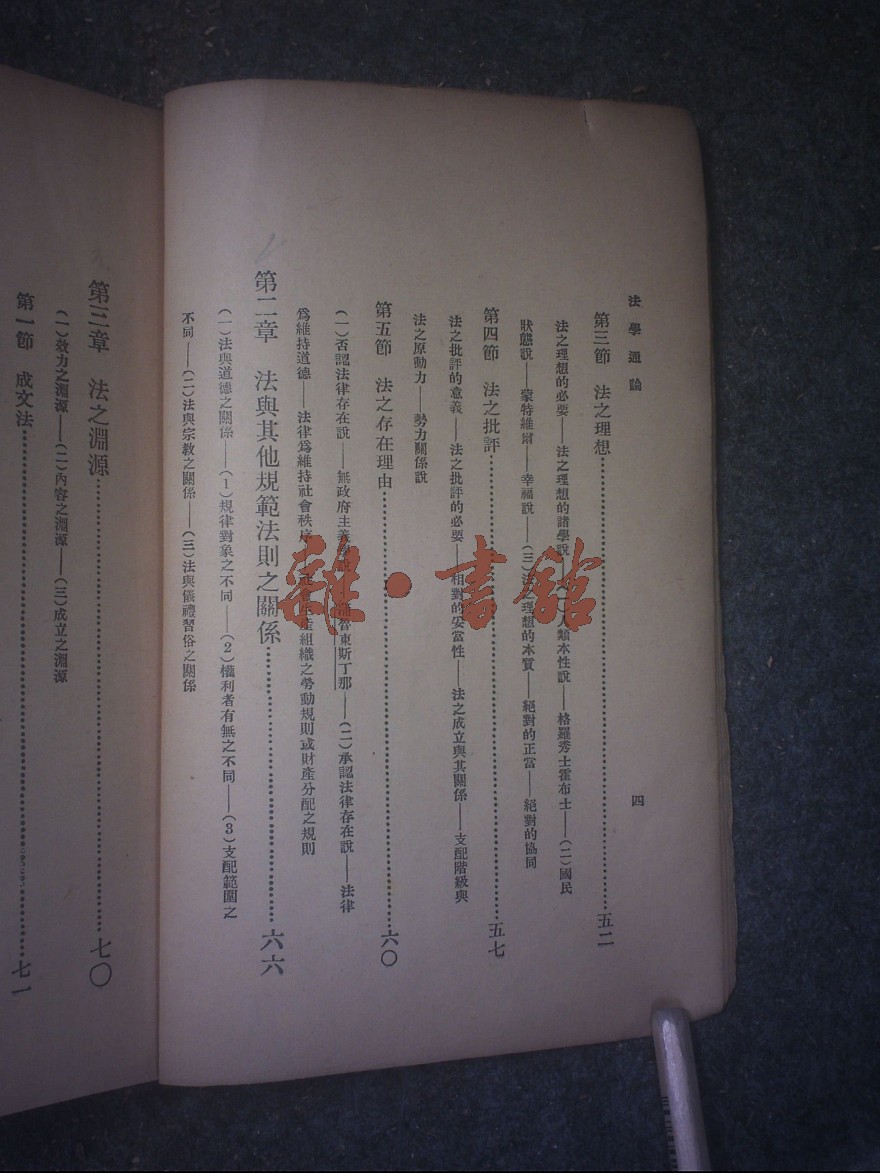 法學通論
四
第三節 法之理想……五二
法之理想的必要——法之理想的諸學說——(一)人類本性說——格羅秀士霍布士——(二)國民
狀態說——蒙特維爾——幸福說——(三)法之理想的本質——絕對的正當——絕對的協同
第四節 法之批評……五七
法之批評的意義——法之批評的必要——相對的妥當性——法之成立與其關係——支配階級與
法之原動力——勢力關係說
第五節 法之存在理由……六〇
(一)否認法律存在說——無政府主義學說——東斯丁那——(二)承認法律存在說——法律
爲維持道德——法律爲維持社會秩序——生產組織之勞動規則或財產分配之規則
第二章 法與其他規範法則之關係……六六
(一)法與道德之關係——(1)規律對象之不同——(2)權利者有無之不同——(3)支配範圍之
不同——(二)法與宗教之關係——(三)法與儀禮習俗之關係
第三章 法之淵源……七〇
(一)效力之淵源——(二)內容之淵源——(三)成立之淵源
第一節 成文法……七一
雜·書館